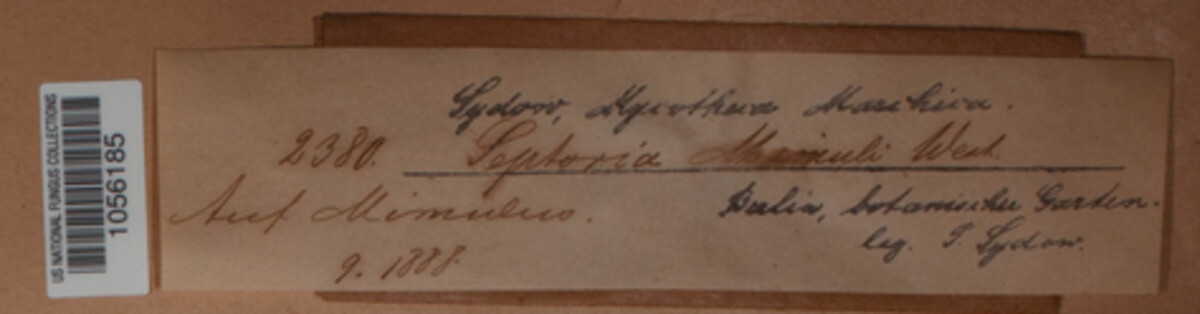 US NATIONAL FUNGUS COLLECTIONS
1056185
Sydow, Mycotheca Marchica.
2380. Septoria Mimuli West.
Auf Mimulus.
Berlin, botanischer Garten.
9. 1888
leg. P. Sydow.